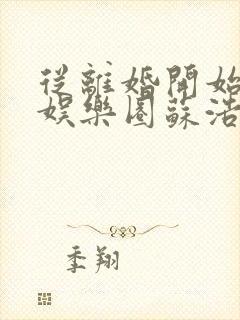 從離婚開始
娛樂圈蘇浩
季翔